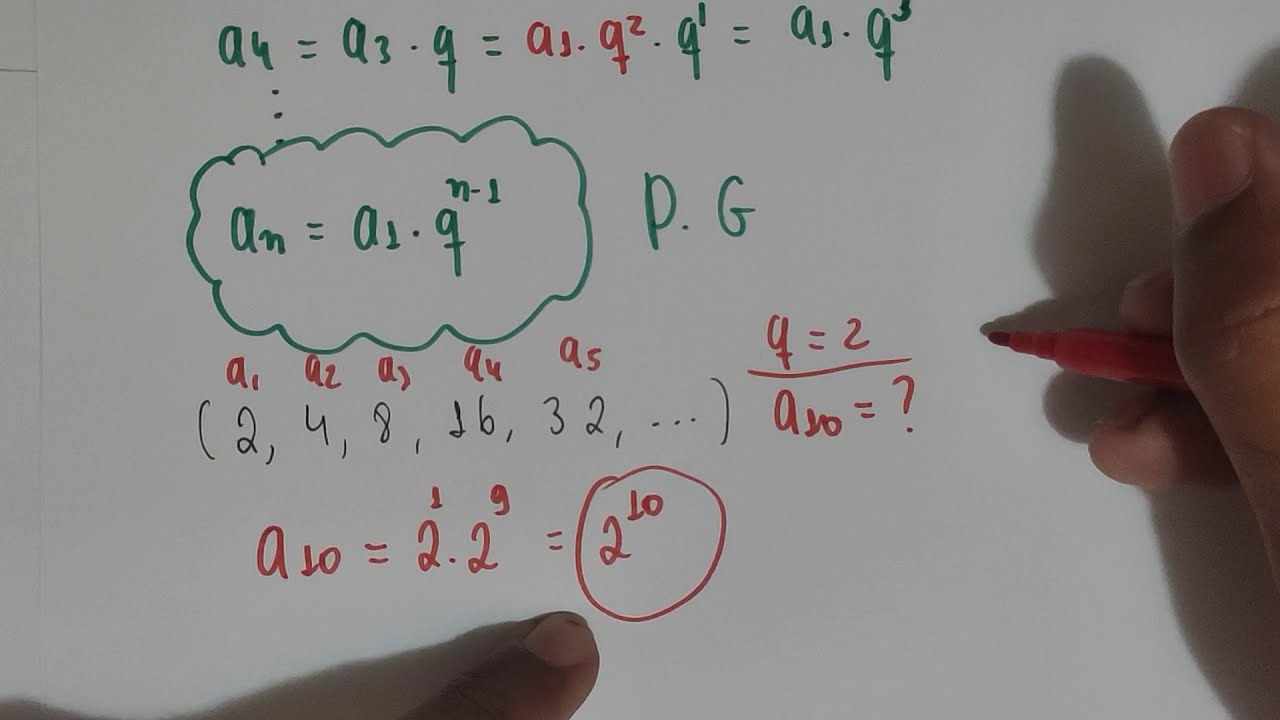 a4 = a3 · q = a1 · q² · q¹ = a1 · q³
⋮
an = a1 · q^(n-1) P.G
a1 a2 a3 a4 a5
(2, 4, 8, 16, 32, ...)
q = 2
a10 = ?
a10 = 2¹ · 2⁹ = 2¹⁰